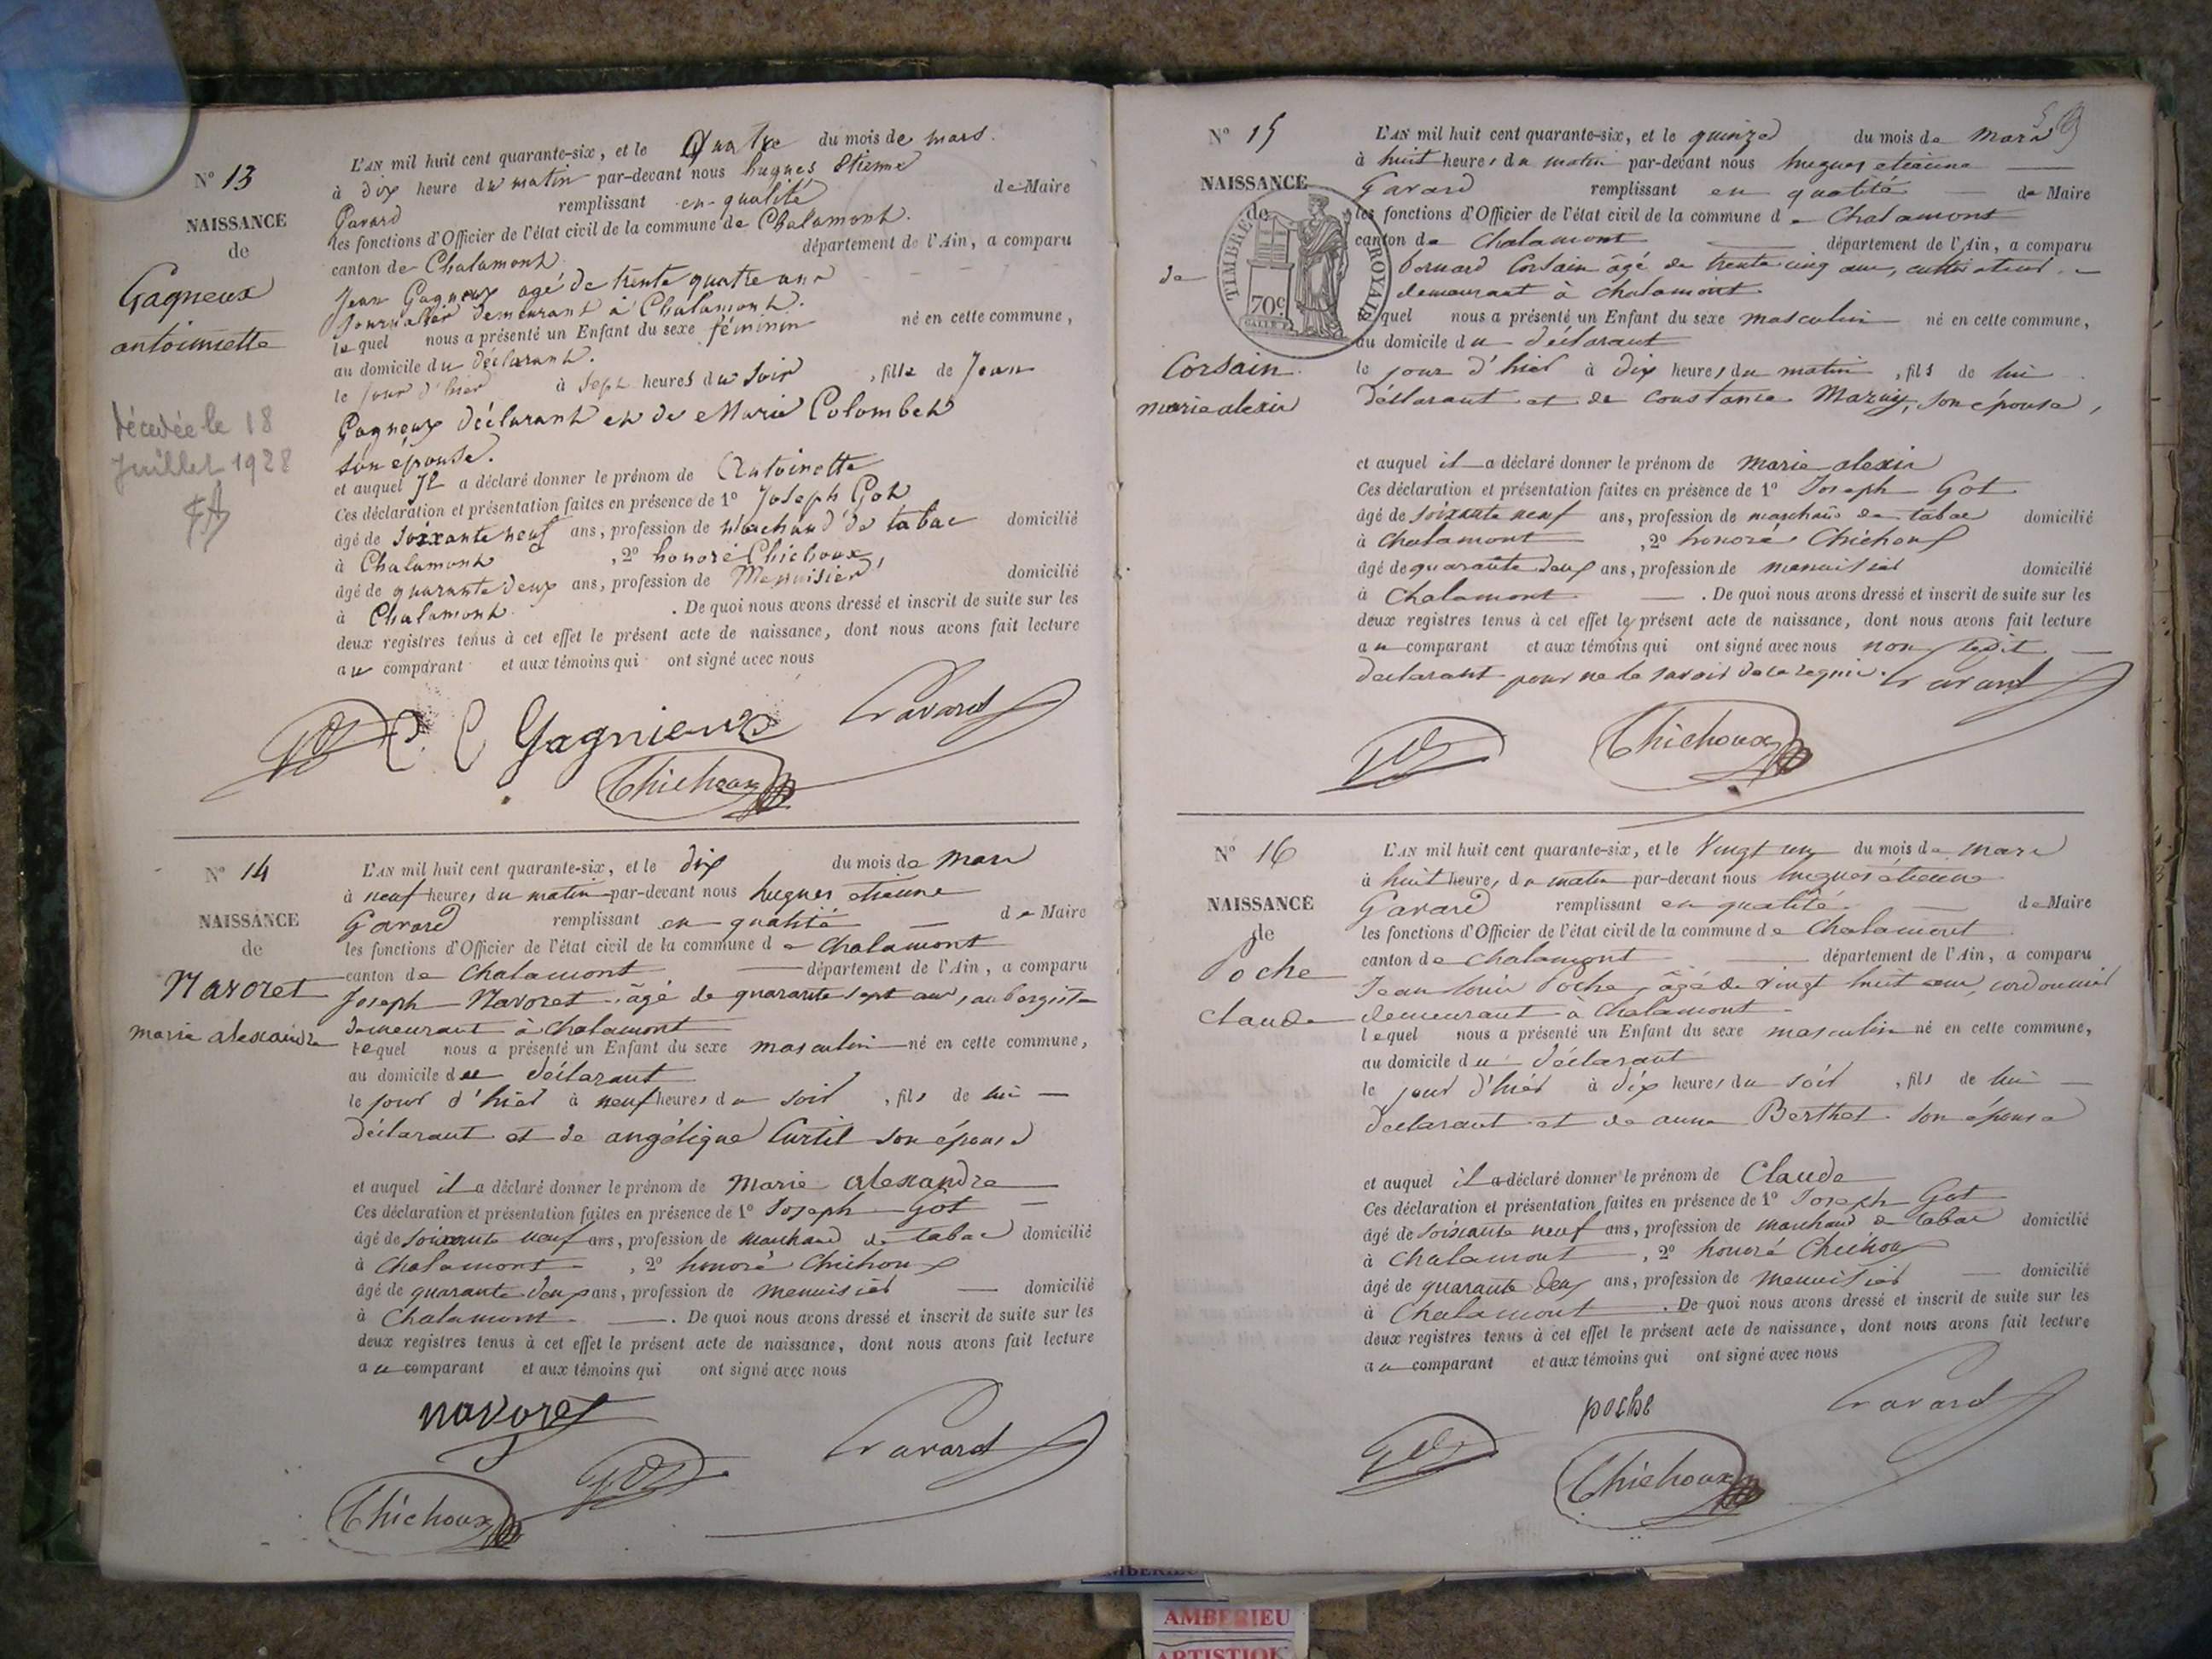 N° 13
NAISSANCE
de
Gagneux
antoinette
décédée le 18
Juillet 1928
L'AN mil huit cent quarante-six, et le Quatre du mois de mars.
à dix heure du matin par-devant nous hugues Etienne
Gavard remplissant en qualité de Maire
les fonctions d'Officier de l'état civil de la commune de Chalamont.
canton de Chalamont département de l'Ain, a comparu
Jean Gagneux agé de trente quatre ans
Journalier demeurant à Chalamont.
lequel nous a présenté un Enfant du sexe féminin né en cette commune,
au domicile du déclarant.
le jour d'hier à sept heures du soir, fille de Jean
Gagneux déclarant et de Marie Colombet
son épouse.
et auquel Il a déclaré donner le prénom de Antoinette
Ces déclaration et présentation faites en présence de 1° Joseph Got
âgé de soixante neuf ans, profession de Marchand de tabac domicilié
à Chalamont, 2° honoré Chichoux,
âgé de quarante deux ans, profession de Menuisier domicilié
à Chalamont. De quoi nous avons dressé et inscrit de suite sur les
deux registres tenus à cet effet le présent acte de naissance, dont nous avons fait lecture
au comparant et aux témoins qui ont signé avec nous
Got Gagnieux Gavard
Chichoux
N° 14
NAISSANCE
de
Navoret
marie alexandre
L'AN mil huit cent quarante-six, et le dix du mois de mars
à neuf heures du matin par-devant nous hugues etienne
Gavard remplissant en qualité de Maire
les fonctions d'Officier de l'état civil de la commune de Chalamont
canton de Chalamont département de l'Ain, a comparu
Joseph Navoret, âgé de quarante sept ans, aubergiste
demeurant à Chalamont
lequel nous a présenté un Enfant du sexe masculin né en cette commune,
au domicile du déclarant
le jour d'hier à neuf heures du soir, fils de lui
déclarant et de angélique Curtil son épouse
et auquel il a déclaré donner le prénom de Marie alexandre
Ces déclaration et présentation faites en présence de 1° Joseph Got
âgé de soixante neuf ans, profession de marchand de tabac domicilié
à Chalamont, 2° honoré Chichoux
âgé de quarante deux ans, profession de menuisier domicilié
à Chalamont. De quoi nous avons dressé et inscrit de suite sur les
deux registres tenus à cet effet le présent acte de naissance, dont nous avons fait lecture
au comparant et aux témoins qui ont signé avec nous
navoret
Gavard
Got
Chichoux
N° 15
NAISSANCE
de
TIMBRE ROYAL
70c
de
Corsain
marie alexis
L'AN mil huit cent quarante-six, et le quinze du mois de mars
à huit heures du matin par-devant nous hugues etienne
Gavard remplissant en qualité de Maire
les fonctions d'Officier de l'état civil de la commune de Chalamont
canton de Chalamont département de l'Ain, a comparu
bernard Corsain âgé de trente cinq ans, cultivateur
demeurant à Chalamont.
lequel nous a présenté un Enfant du sexe masculin né en cette commune,
au domicile du déclarant
le jour d'hier à dix heures du matin, fils de lui
déclarant et de constance Mazuy, son épouse,
et auquel il a déclaré donner le prénom de marie alexis
Ces déclaration et présentation faites en présence de 1° Joseph Got
âgé de soixante neuf ans, profession de marchand de tabac domicilié
à Chalamont, 2° honoré Chichoux
âgé de quarante deux ans, profession de menuisier domicilié
à Chalamont. De quoi nous avons dressé et inscrit de suite sur les
deux registres tenus à cet effet le présent acte de naissance, dont nous avons fait lecture
au comparant et aux témoins qui ont signé avec nous non ledit
déclarant pour ne le savoir de ce requis. Gavard
Got Chichoux
N° 16
NAISSANCE
de
Poche
Claude
L'AN mil huit cent quarante-six, et le Vingt un du mois de mars
à huit heures du matin par-devant nous hugues étienne
Gavard remplissant en qualité de Maire
les fonctions d'Officier de l'état civil de la commune de Chalamont
canton de Chalamont département de l'Ain, a comparu
Jean louis Poche, âgé de vingt huit ans, cordonnier
demeurant à Chalamont
lequel nous a présenté un Enfant du sexe masculin né en cette commune,
au domicile du déclarant
le jour d'hier à dix heures du soir, fils de lui
déclarant et de anne Berthet son épouse
et auquel il a déclaré donner le prénom de Claude
Ces déclaration et présentation faites en présence de 1° Joseph Got
âgé de soixante neuf ans, profession de marchand de tabac domicilié
à Chalamont, 2° honoré Chichoux
âgé de quarante deux ans, profession de menuisier domicilié
à Chalamont. De quoi nous avons dressé et inscrit de suite sur les
deux registres tenus à cet effet le présent acte de naissance, dont nous avons fait lecture
au comparant et aux témoins qui ont signé avec nous
poche Gavard
Got
Chichoux
AMBERIEU
AMBERIEU